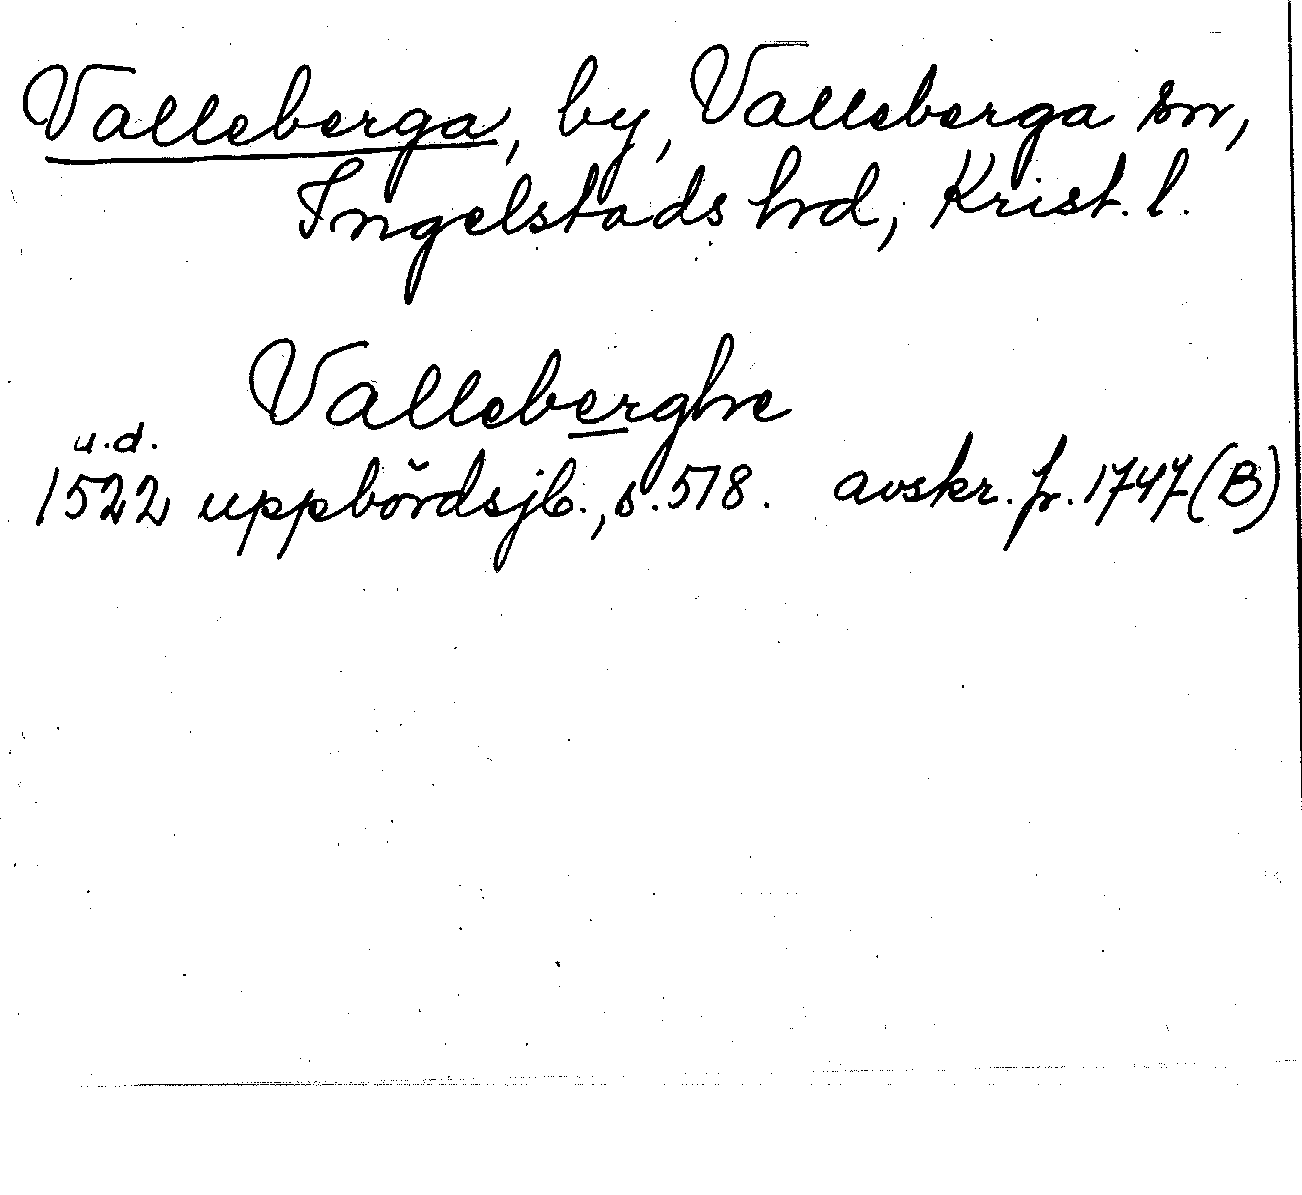 Valleberga, by, Valleberga sn,
Ingelstads hrd, Krist. l.
Valleberghe
u.d.
1522 uppbördsjb., s. 518. avskr. fr. 1747 (B)